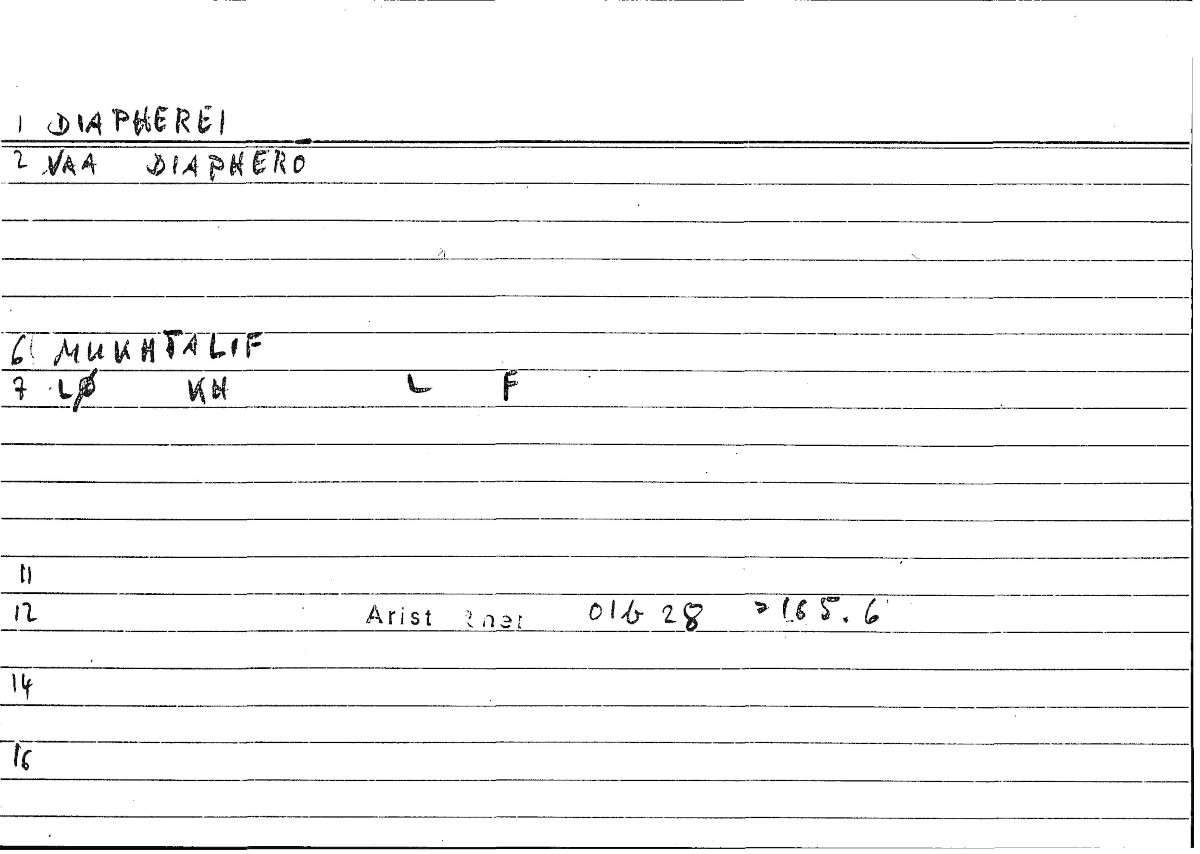 1 DIAPHEREI
2 VAA DIAPHERO
6 MUKHTALIF
7 LØ KH L F
11
12 Arist Rhet 01b 28 = 165.6
14
16